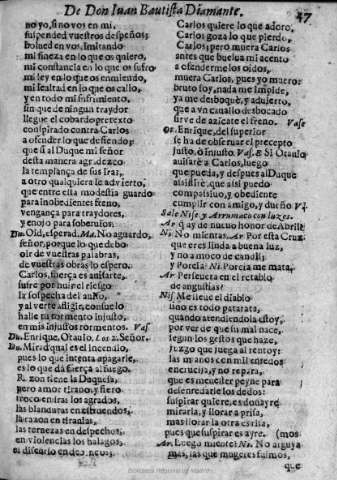 De Don Iuan Bautista Diamante. 47
no yo, sino vos en mi,
suspended vuestros despeños;
bolued en vos, imitando
mi fineza en lo que os quiero,
mi constancia en lo que os sufro
mi ley en lo que os enmiendo,
mi lealtad en lo que os callo,
y en todo mi sufrimiento,
sin que de ningun traydor
llegue el cobarde pretexto
conspirado contra Carlos
a ofender lo que defiendo;
que si al Duque mi señor
desta manera agradezco
la templança de sus iras,
a otro qualquiera le advierto,
que entre esta modestia guardo
para inobedientes freno,
vengança para traydores,
y enojo para soberuios.
Old, esperad. Ma. No aguardo,
señor, porque lo que debo
oir de vuestras palabras,
de vuestras obras lo espero.
Carlos, fuerça es auisarte,
sufre por huir el riesgo
la sospecha del auiso,
y al verte afligir, consuelo
halle tu tormento injusto,
en mis injustos tormentos. Vas
Du. Enrique, Otauio. Los 2. Señor.
Du. Mirad qual es el incendio,
pues lo que intenta apagarle,
es lo que dà fuerça al fuego.
Razon tiene la Duquesa,
pero amor tirano, y fiero
troco en iras los agrados,
las blanduras en estruendos,
la razon en tiranias,
las ternezas en despechos,
en violencias los halagos,
el discurso en deuaneos.
Carlos quiere lo que adoro,
Carlos goza lo que pierdo,
Carlos; pero muera Carlos
antes que buelua mi acento
a ofenderme los oidos,
muera Carlos, pues yo muero:
bruto soy, nada me impide,
ya me desboquè, y aduierto,
que a vn cauallo desbocado
sirve de azicate el freno. Vase
Ot. Enrique, del superior
se ha de obseruar el precepto
justo, ò injusto. Vas. E. Si Otauio
auisarè a Carlos, luego
que pueda, y despues al Duque
assistirè, que assi puedo
compassiuo, y obediente
cumplir con amigo, y dueño Vas
Sale Nise y Arrumaco con luzes.
Ar. q ay de nueuo honor de Abril?
Ni. No mientas. Ar. Por esta Cruz,
que eres linda a buena luz,
y no a moco de candil;
y Porcia? Ni. Porcia me mata,
Ar. Persevera en el retablo
de angustias?
Nis. Me lleue el diablo
sino es todo patarata,
quando atendiendola estoy,
por ver de que su mal nace,
segun los gestos que haze,
juzgo que juega al rentoy:
las manos con mil enredos
encrucija, y no repara,
que es menester peyne para
desenredarle los dedos:
suspirar quiere, es donayre
mirarla, y llorar a prisa,
mas llorar la otra es risa,
pues que suspirar es ayre. (mos
Ar. Luego miente? Ni. No arguya
mas, las que mugeres fuimos,
que
Biblioteca Regional de Madrid